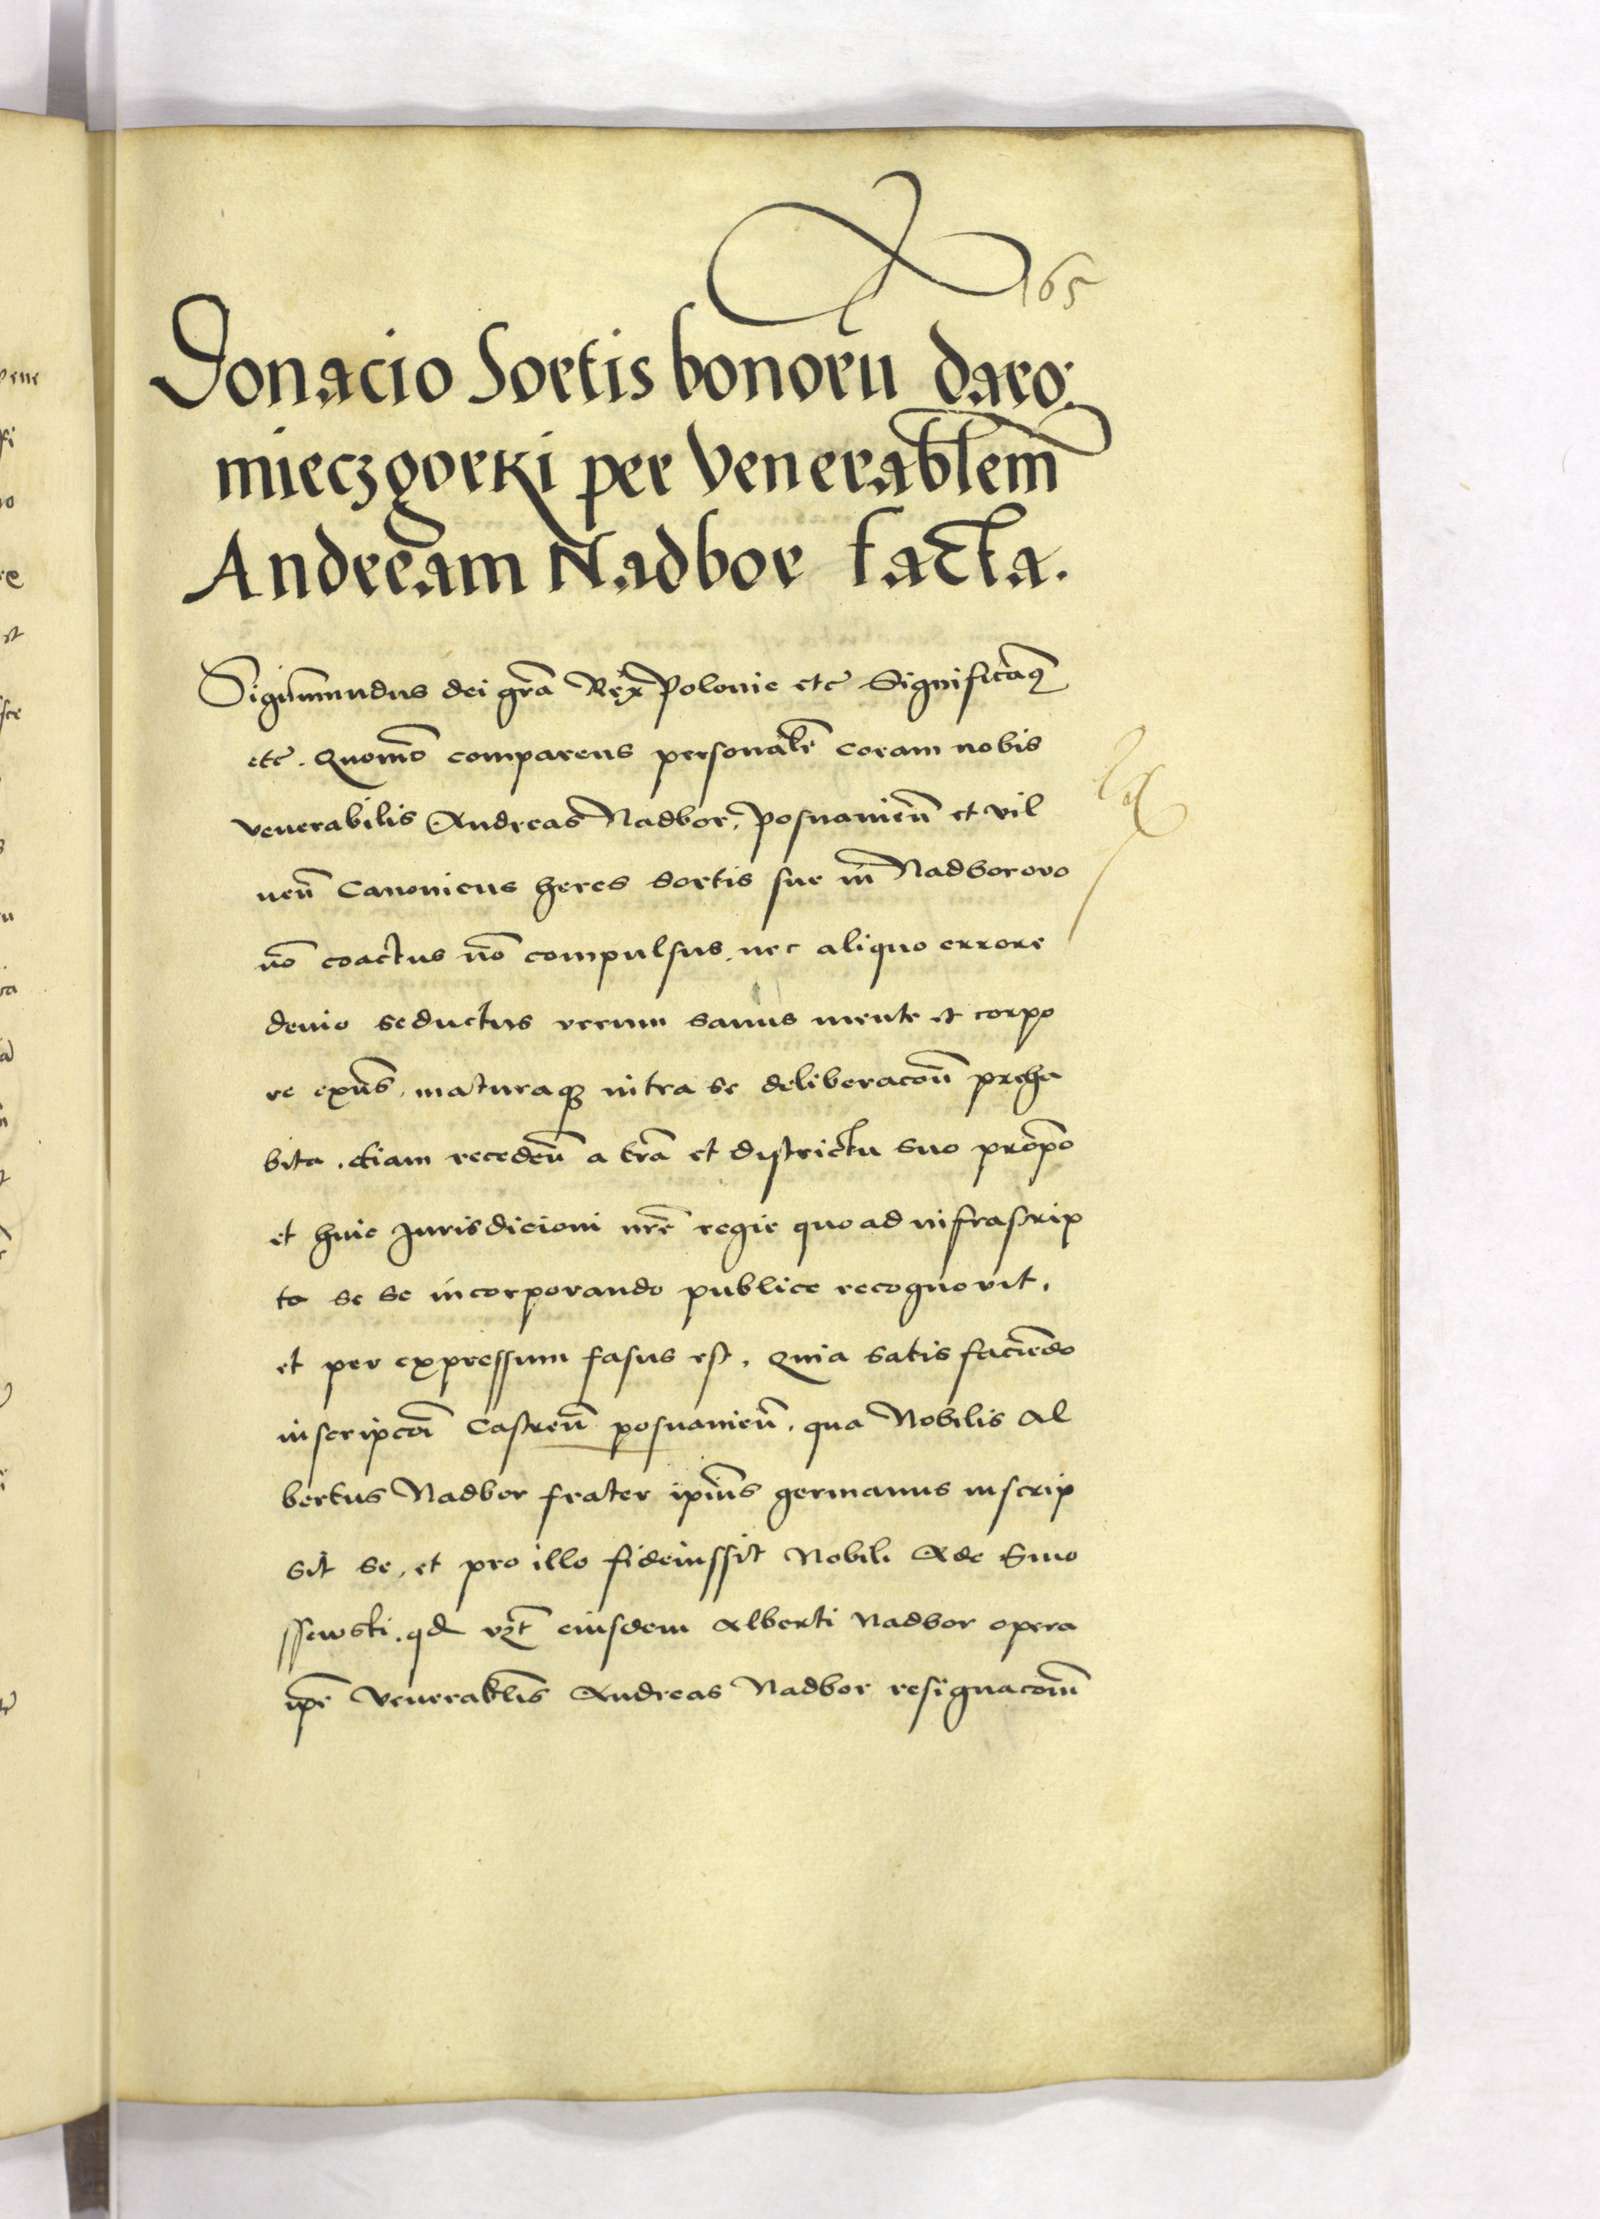 165
Donacio Sortis bonorū daro:
mieczgorki per Venerablem̄
Andream Nadbor facta.
Sigismundus dei gr̄a Rex Polonie etc Significam̄q
etc. Quomō comparens personalr̄ coram nobis
venerabilis Andreas Nadbor, posnanien̄ et vil
nen̄ Canonicus heres sortis sue in Nadborovo
nō coactus nō compulsus, nec aliquo errore
devio seductus verum sanus mente et corpo
re exn̄s, maturaq intra se deliberacōn̄ preha
bita, etiam receden̄ a trā et districtu suo proprō
et huic Jurisdicioni nr̄e regie quo ad infrascrip
ta se se incorporando publice recognovit,
et per expressum fasus est, Quia satis faciendō
inscripcōi Castren̄ posnanien̄, qua Nobilis Al
bertus Nadbor frater ipiūs germanus inscrip
sit se, et pro illo fideiussit Nobili Ade Smo
ssewski, qd vz̄t eiusdem Alberti Nadbor opera
ip̄e Venerablīs Andreas Nadbor resignacōm̄